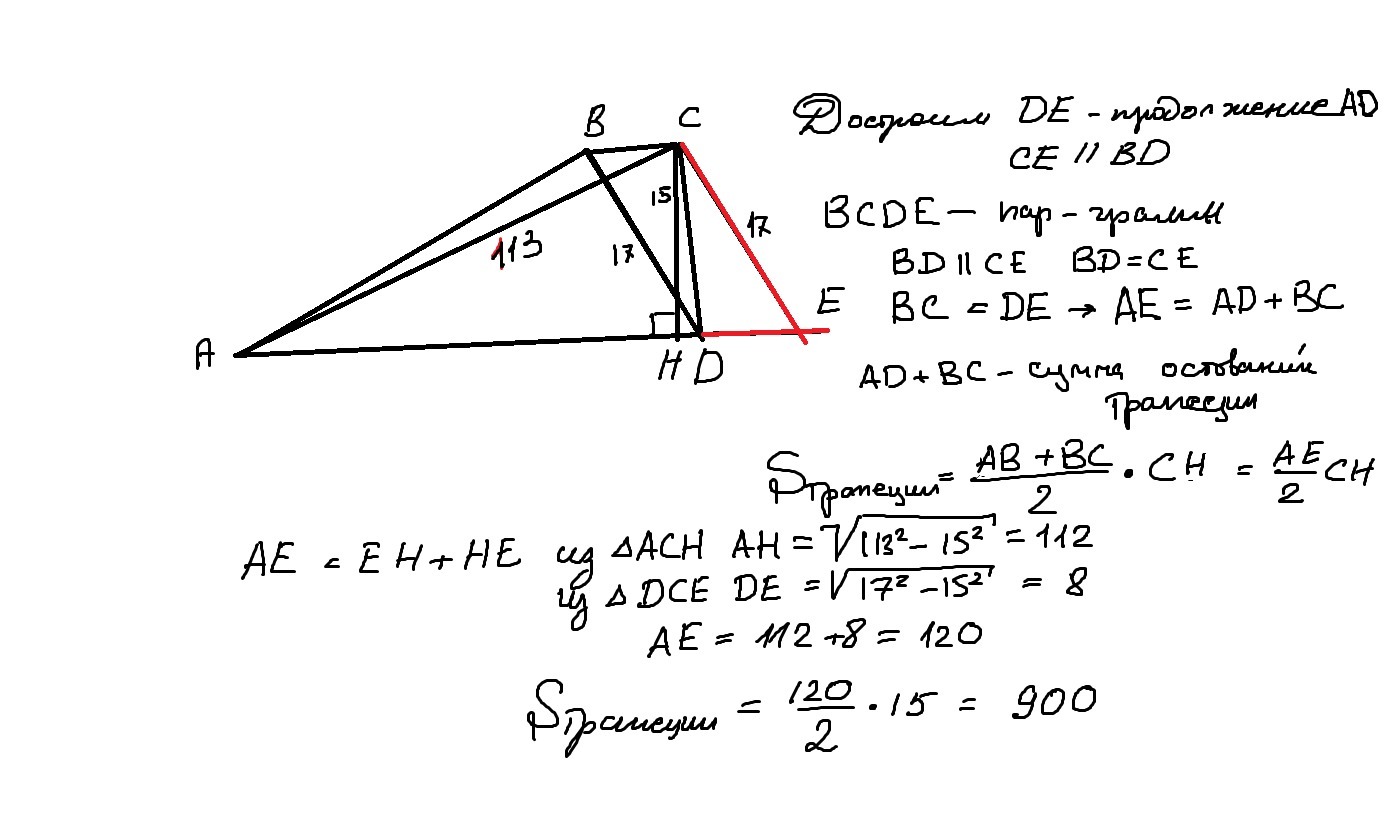 Достроим DE - продолжение AD
CE // BD
B C
15
17
BCDE - пар-грамм
113
17
BD || CE BD = CE
E
BC = DE → AE = AD + BC
A
H D
AD + BC - сумма остований
трапеции
Sтрапеции = AB + BC / 2 · CH = AE / 2 CH
AE = EH + HE из △ACH AH = √113² - 15² = 112
из △DCE DE = √17² - 15² = 8
AE = 112 + 8 = 120
Sтрапеции = 120 / 2 · 15 = 900